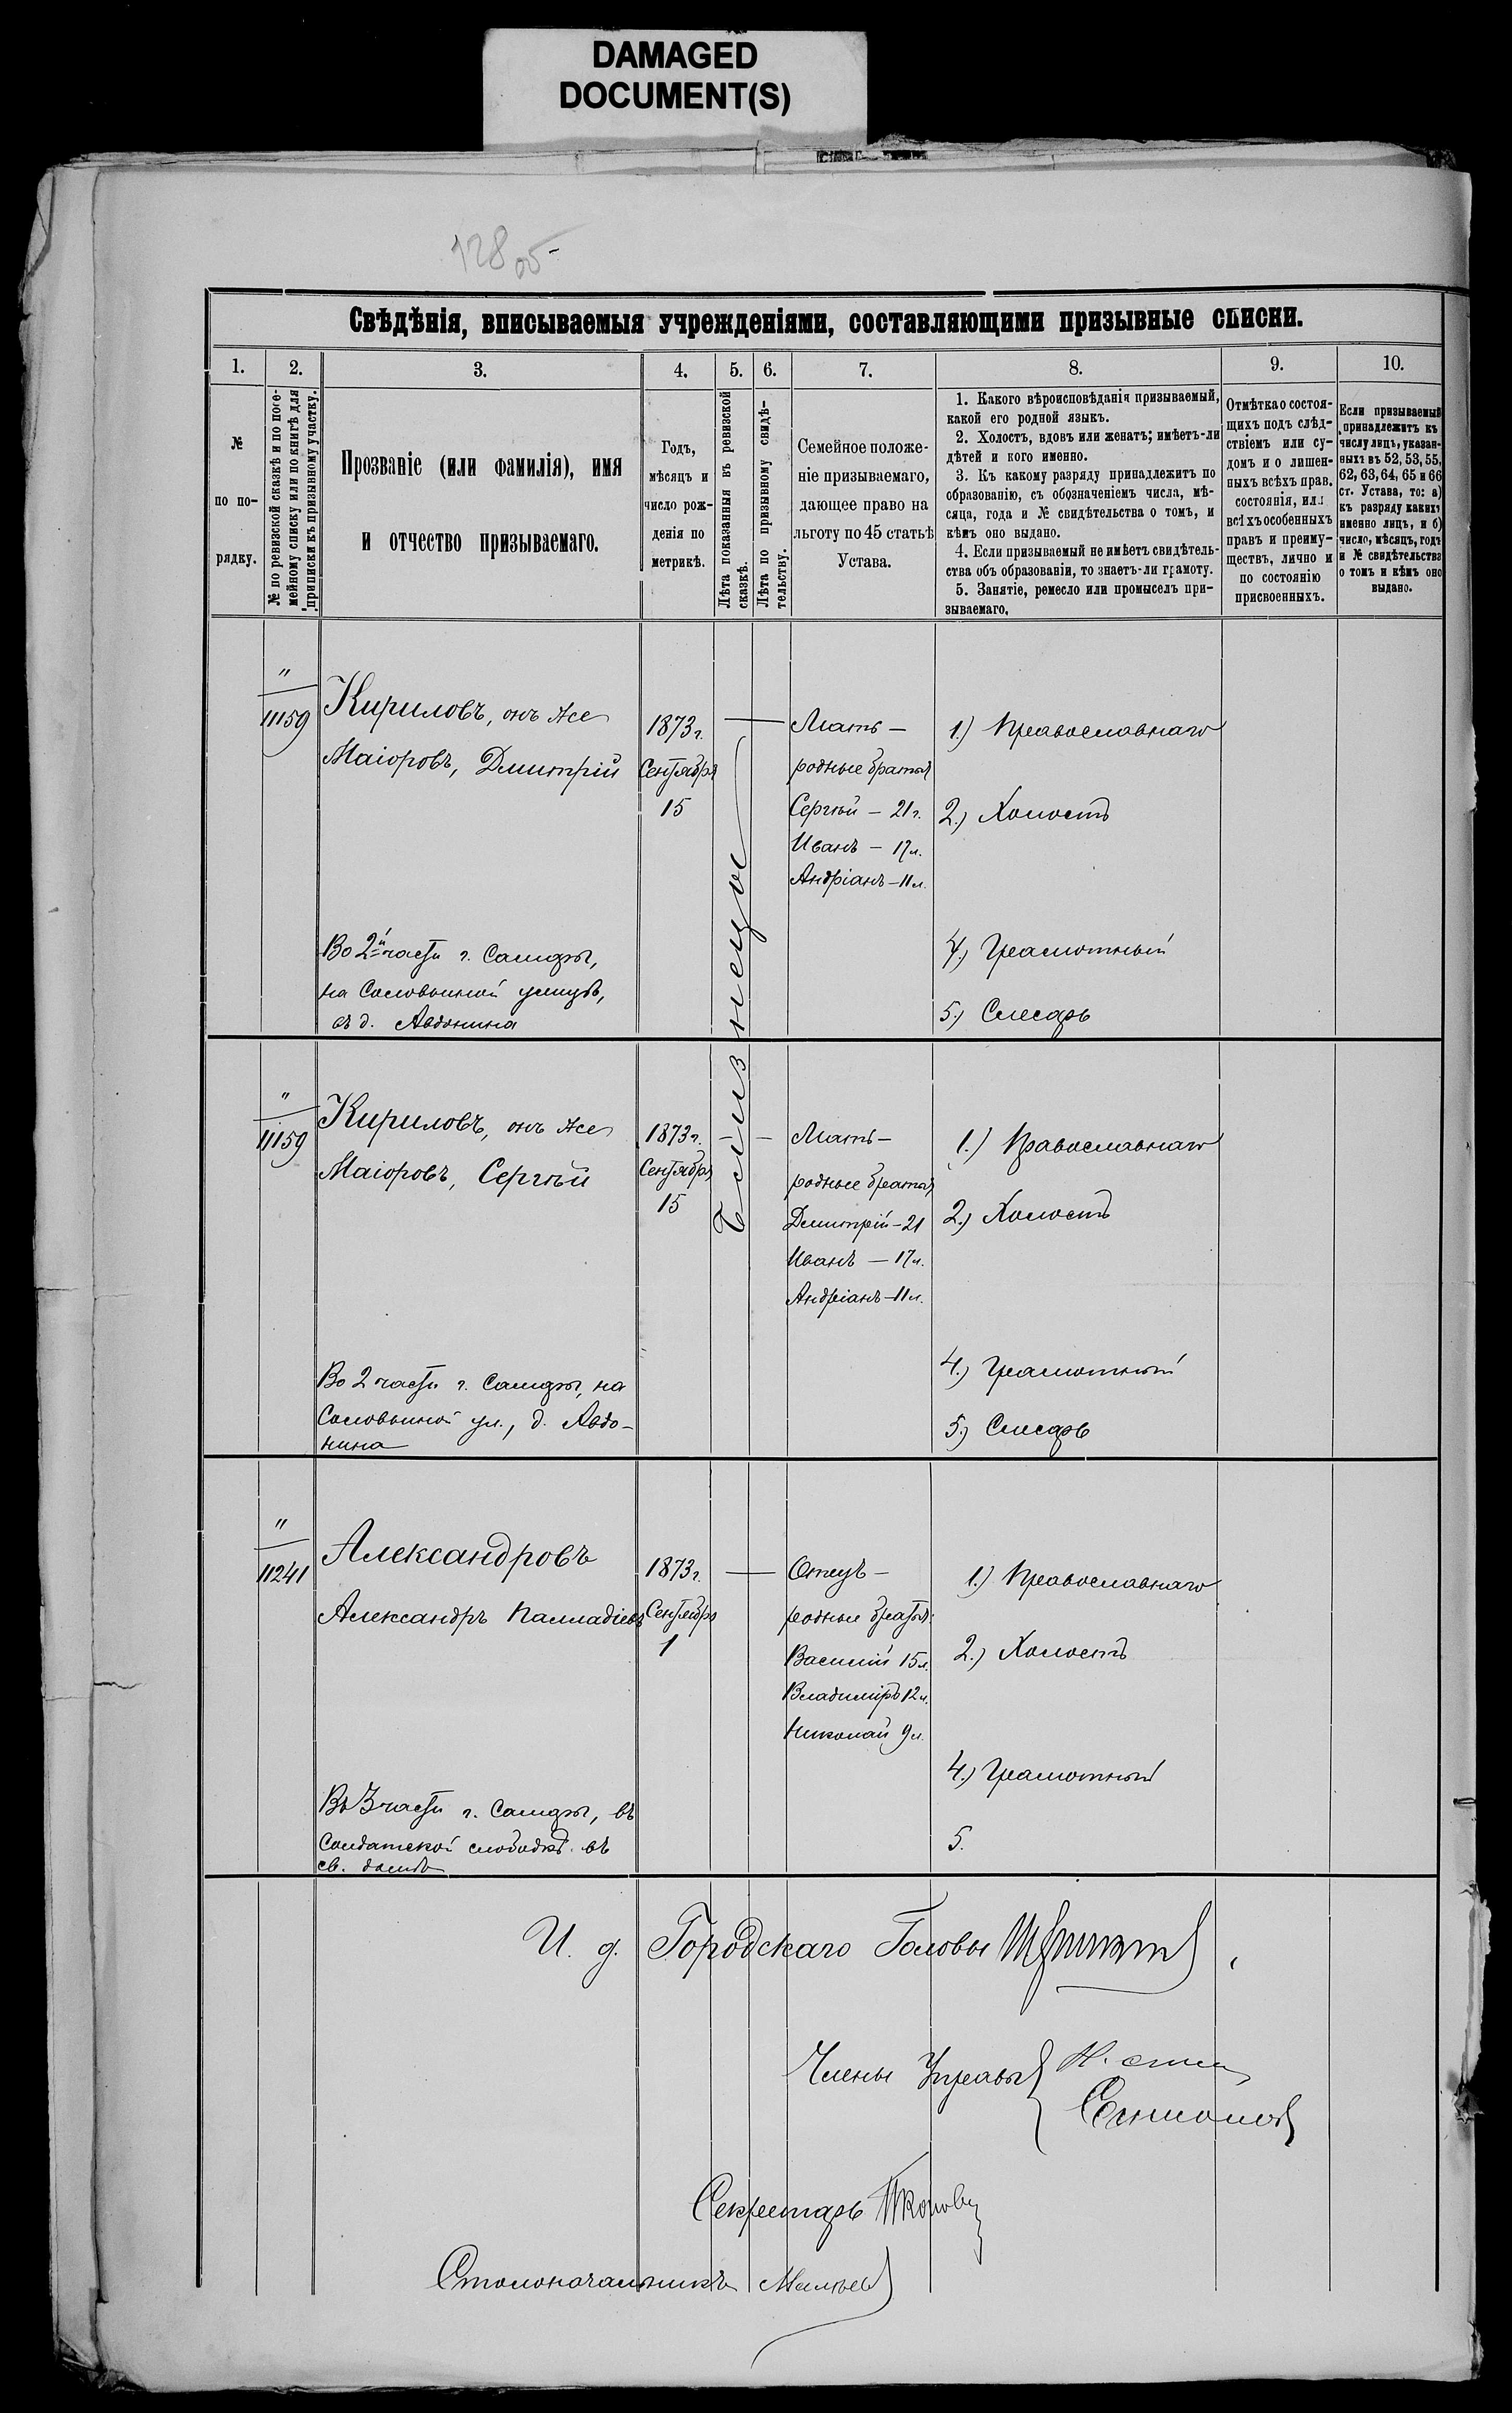 DAMAGED
DOCUMENT(S)
128 об
Свѣдѣнія, вписываемыя учрежденіями, составляющими призывные списки.
1.
2.
3.
4.
5.
6.
7.
8.
9.
10.
№
по по-
рядку.
№ по ревизской сказкѣ и по посе-
мейному списку или по книгѣ для
приписки къ призывному участку.
Прозваніе (или фамилія), имя
и отчество призываемаго.
Годъ,
мѣсяцъ и
число рож-
денія по
метрикѣ.
Лѣта показанныя въ ревизской
сказкѣ.
Лѣта по призывному свидѣ-
тельству.
Семейное положе-
ніе призываемаго,
дающее право на
льготу по 45 статьѣ
Устава.
1. Какого вѣроисповѣданія призываемый,
какой его родной языкъ.
2. Холостъ, вдовъ или женатъ; имѣетъ-ли
дѣтей и кого именно.
3. Къ какому разряду принадлежитъ по
образованію, съ обозначеніемъ числа, мѣ-
сяца, года и № свидѣтельства о томъ, и
кѣмъ оно выдано.
4. Если призываемый не имѣетъ свидѣтель-
ства объ образованіи, то знаетъ-ли грамоту.
5. Занятіе, ремесло или промыселъ при-
зываемаго.
Отмѣтка о состоя-
щихъ подъ слѣд-
ствіемъ или су-
домъ и о лишен-
ныхъ всѣхъ прав.
состоянія, или
всѣхъ особенныхъ
правъ и преиму-
ществъ, лично и
по состоянію
присвоенныхъ.
Если призываемый
принадлежитъ къ
числу лицъ, указан-
ныхъ въ 52, 53, 55,
62, 63, 64, 65 и 66
ст. Устава, то: а)
къ разряду какихъ
именно лицъ, и б)
число, мѣсяцъ, годъ
и № свидѣтельства
о томъ и кѣмъ оно
выдано.
"
11159
Кириловъ, онъ же
Маіоровъ, Дмитрій
Во 2й части г. Самары,
на Соловьиной улицѣ,
въ д. Авдонина
1873 г.
Сентября
15
Близнецы
Мать —
родные братья
Сергѣй — 21 г.
Иванъ — 17 л.
Андріанъ — 11 л.
1.) Православнаго
2.) Холостъ
4.) Грамотный
5.) Слесарь
"
11159
Кириловъ, онъ же
Маіоровъ, Сергѣй
Во 2 части г. Самары, на
Соловьиной ул., д. Авдо-
нина
1873 г.
Сентября
15
Мать —
родные братья
Дмитрій — 21
Иванъ — 17 л.
Андріанъ — 11 л.
1.) Православнаго
2.) Холостъ
4.) Грамотный
5.) Слесарь
"
11241
Александровъ
Александръ Палладіевъ
Въ 3 части г. Самары, въ
Солдатской слободкѣ въ
св. домѣ
1873 г.
Сентября
1
Отецъ —
родные братья:
Василій 15 л.
Владиміръ 12 л.
Николай 9 л.
1.) Православнаго
2.) Холостъ
4.) Грамотный
5.
И. д. Городскаго Головы
Члены Управы
Секретарь
Столоначальникъ